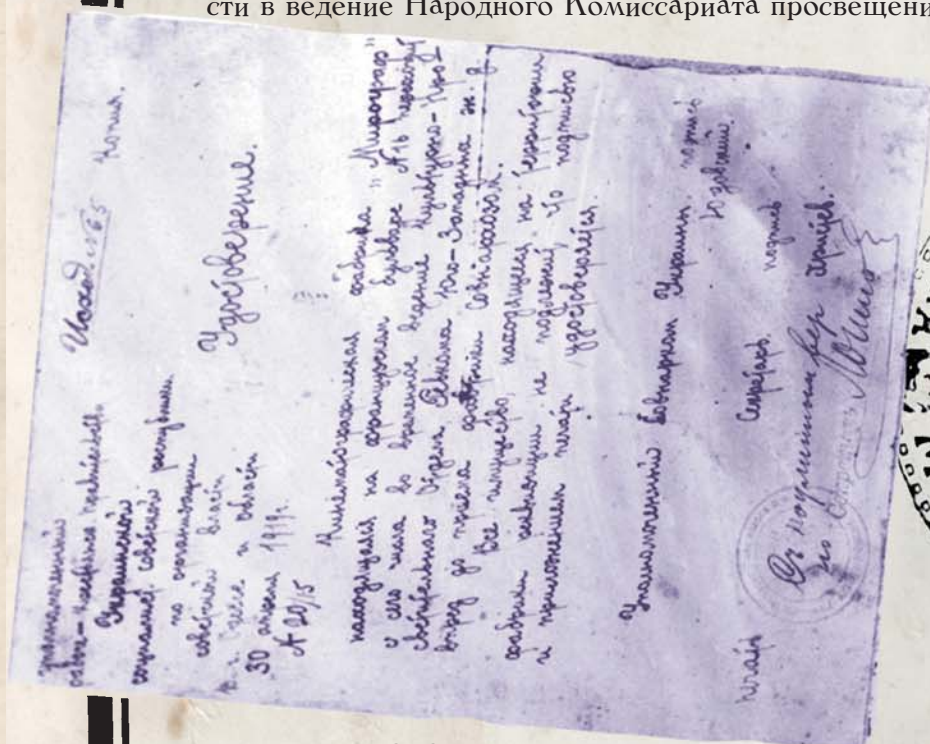 сти в ведение Народного Комиссариата просвещени
Исход № 65 Копия.
Украинской
социалист. советской республики
по организации
советской власти
в г. Одессе и области
30 апреля 1919 г.
№ 20/15
Удостоверение.
Кинематографическая фабрика "Мирограф"
находящаяся на французском бульваре №16 переходит
с сего числа во временное ведение Культурно-Про-
светительного Отдела Сбълнама Юго-Западна ж. д.
впредь до приема фабрики Совнархозом.
Все имущество, находящееся на территории
фабрики реквизиции не подлежит, что подписью
и приложением печати удостоверяется.
Уполномоченный Совнаркома Украины. подпись
Секретарь подпись
печать
Съ подлинным верно